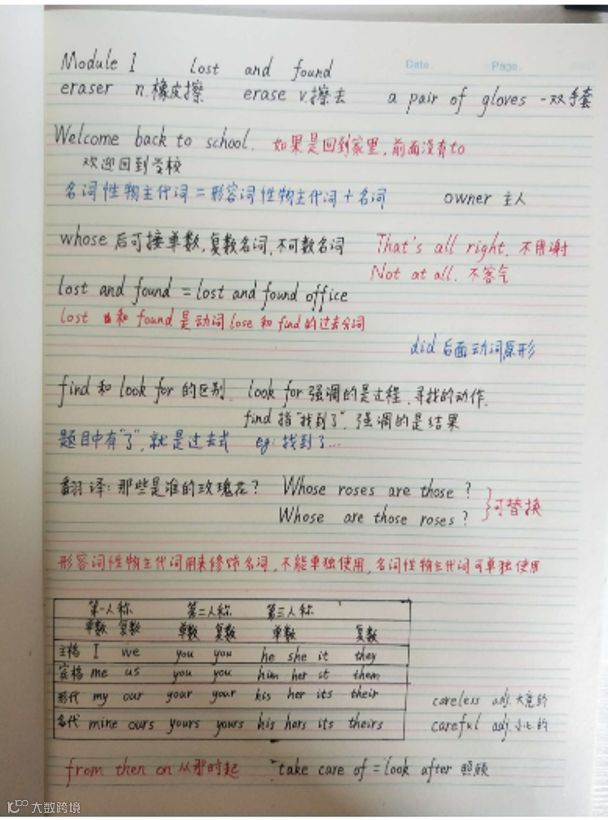 Date. Page.
Module 1 lost and found
eraser n.橡皮擦 erase v.擦去 a pair of gloves 一双手套
Welcome back to school. 如果是回到家里,前面没有to
欢迎回到学校
名词性物主代词=形容词性物主代词+名词 owner 主人
whose 后可接单数,复数名词,不可数名词 That's all right. 不用谢
Not at all. 不客气
lost and found = lost and found office
lost 和 found 是动词 lose 和 find 的过去分词
did 后面动词原形
find 和 look for 的区别. look for 强调的是过程,寻找的动作.
find 指"找到了",强调的是结果
题目中有"了",就是过去式 eg: 找到了...
翻译:那些是谁的玫瑰花? Whose roses are those ?
Whose are those roses ? 可替换
形容词性物主代词用来修饰名词,不能单独使用,名词性物主代词可单独使用
第一人称 第二人称 第三人称
单数 复数 单数 复数 单数 复数
主格 I we you you he she it they
宾格 me us you you him her it them
形代 my our your your his her its their careless adj.大意的
名代 mine ours yours yours his hers its theirs careful adj.小心的
from then on 从那时起 take care of = look after 照顾
大数跨境